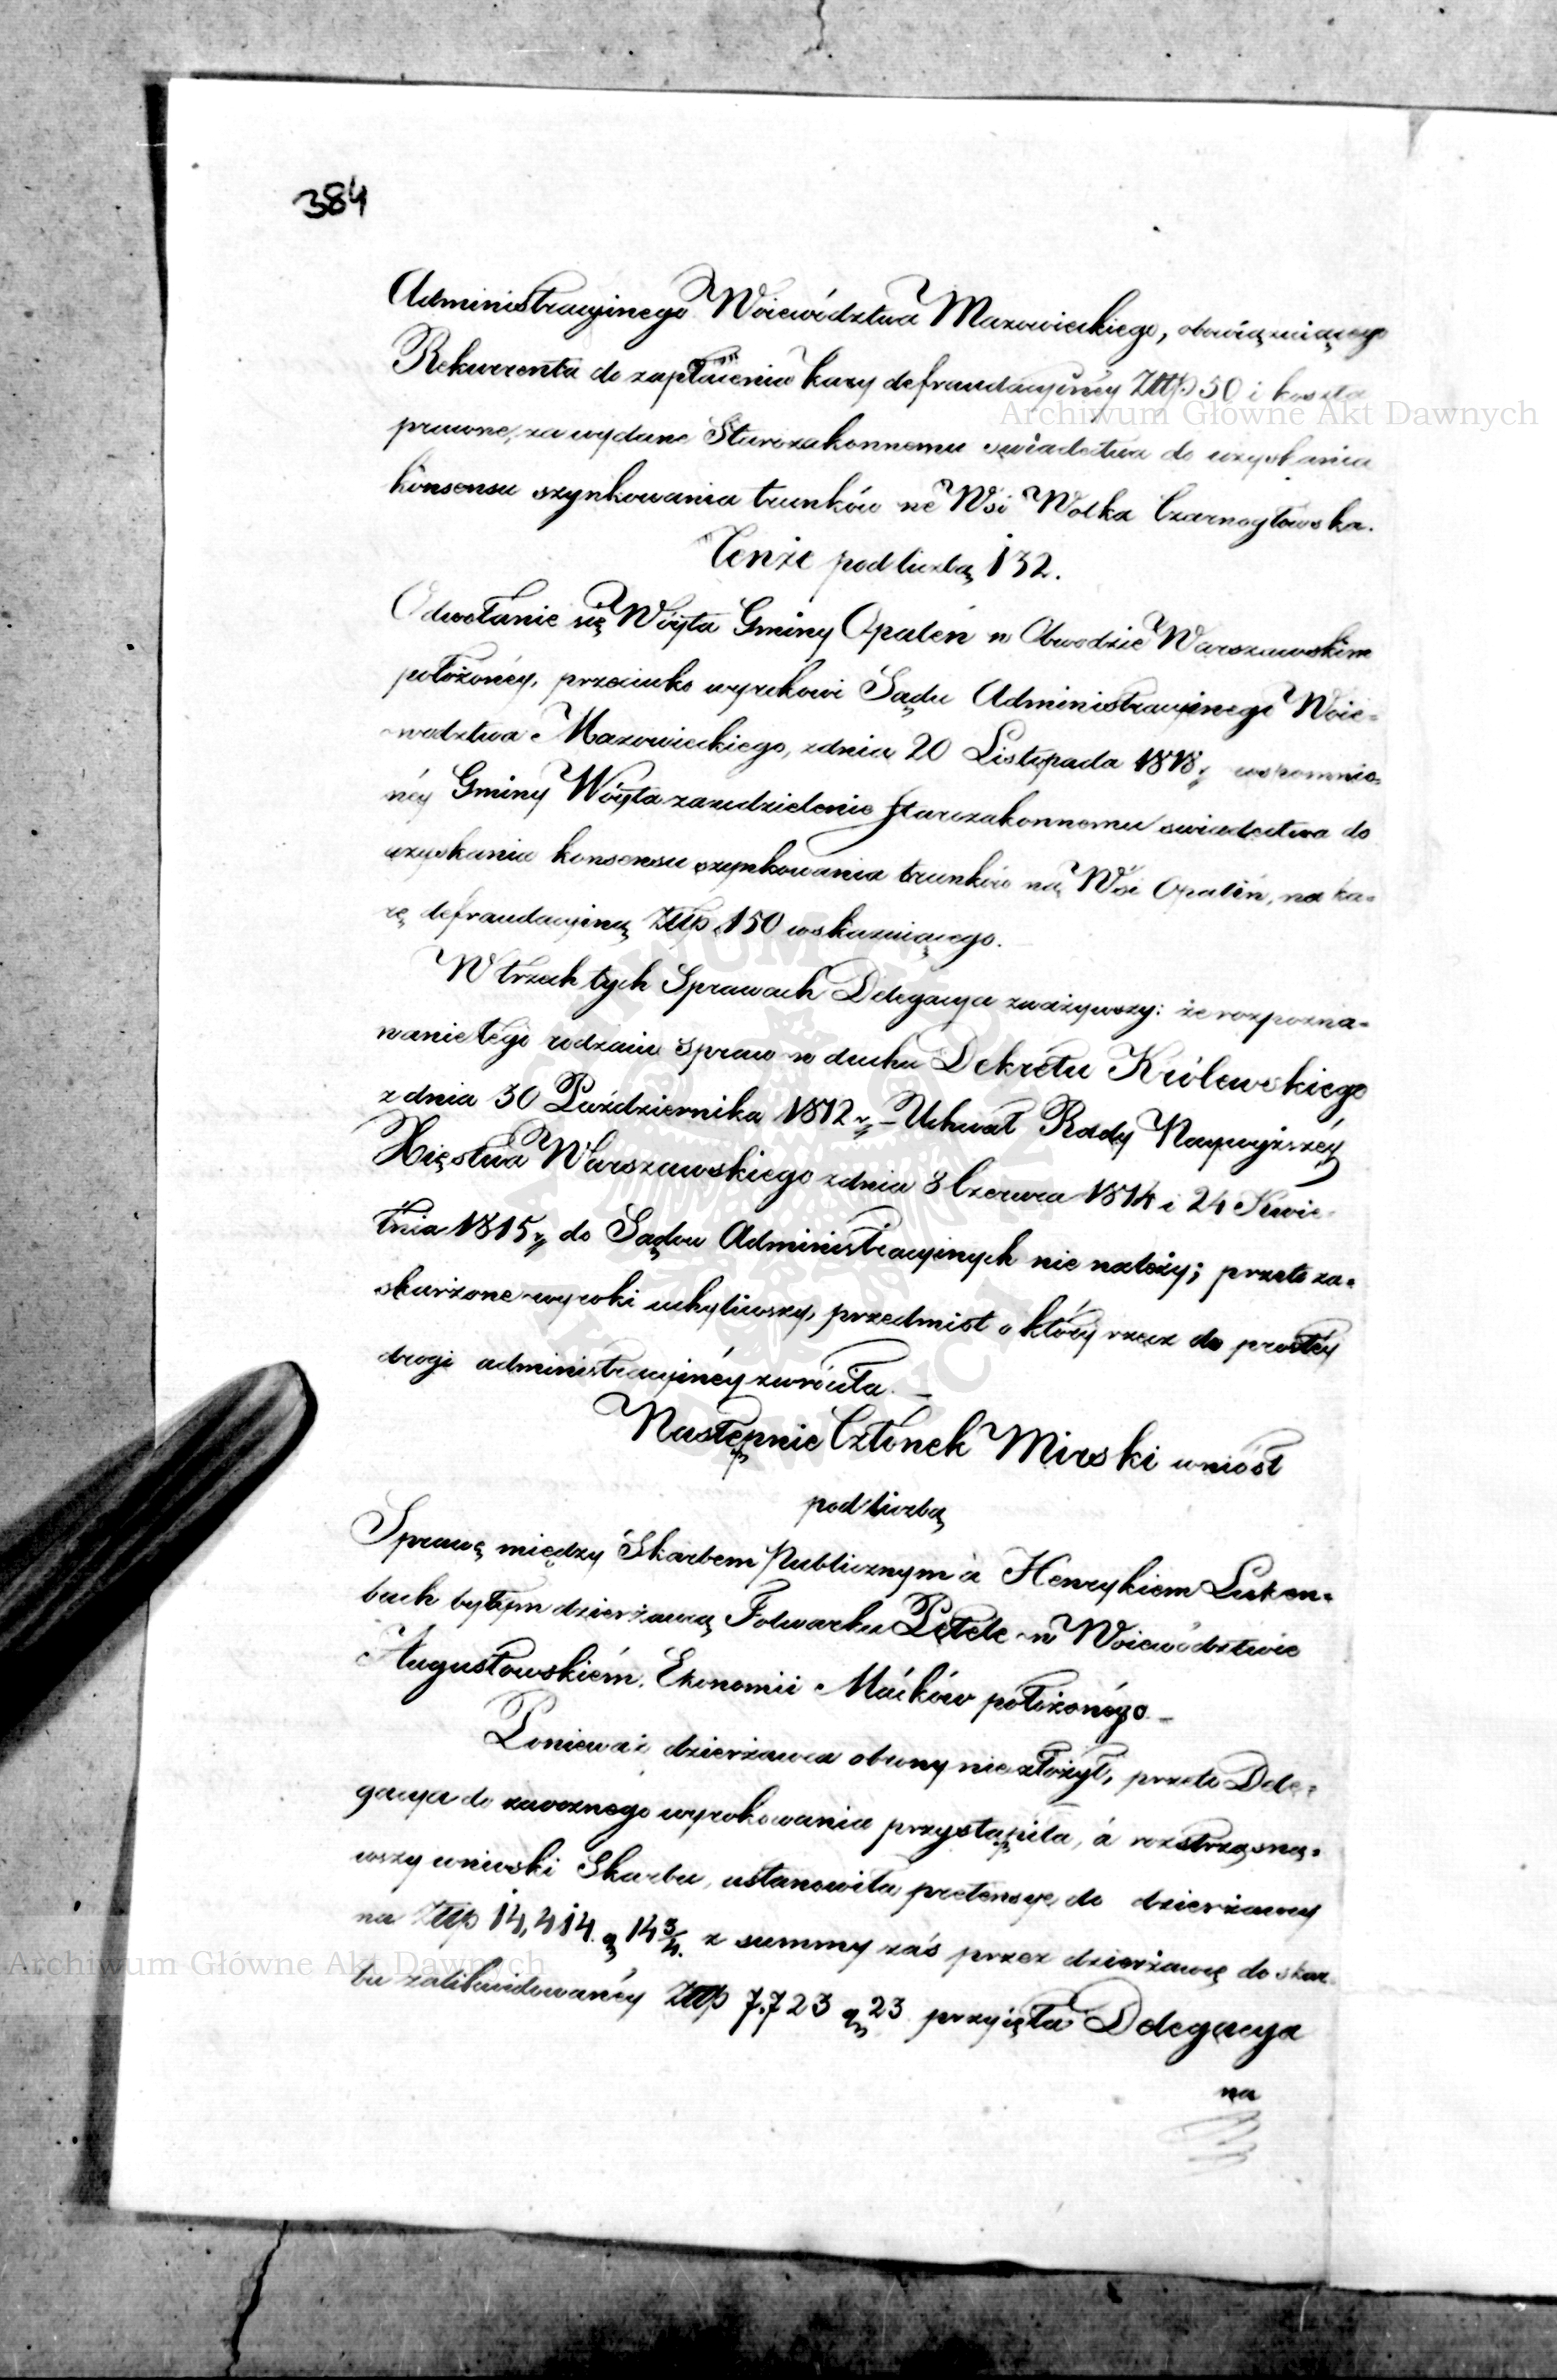 384
Administracyinego Woiewództwa Mazowieckiego, obowiązuiącego
Rekurrenta do zapłacenia kary defraudacyinéy Złtp 50 i koszta
prawne, za wydane Starozakonnemu swiadectwa do uzyskania
konsensu szynkowania trunków we Wsi Wolka Czarnogłowska.
Tenże pod liczbą 132.
Odwołanie się Wóyta Gminy Opaleń w Obwodzie Warszawskim
położonéy, przeciwko wyrokowi Sądu Administracyinego Woie=
wodztwa Mazowieckiego, z dnia 20 Listopada 1818 r, wspomnio=
néy Gminy Wóyta za udzielenie Starozakonnemu swiadectwa do
uzyskania konsensu szynkowania trunków na Wsi Opaliń, na ka=
rę defraudacyiną Złtp. 150 wskazuiącego.
W trzech tych Sprawach Delegacya zważywszy: że rozpozna=
wanie tego rodzaiu spraw w duchu Dekretu Królewskiego
z dnia 30 Października 1812 r, – Uchwał Rady Naywyższéy
Xięstwa Warszawskiego z dnia 3 Czerwca 1814 i 24 Kwie=
tnia 1815 r, do Sądów Administracyinych nie należy; przeto za=
skarżone wyroki uchyliwszy, przedmiot o który rzecz do prostéy
drogi administracyinéy zwróciła. –
Następnie Członek Mirski wniósł
pod liczbą
Sprawę między Skarbem Publicznym a Henrykiem Luken=
bach byłym dzierżawcą Folwarku Pętele w Woiewództwie
Augustowskiém, Ekonomii Maćków położonégo. –
Ponieważ dzierżawca obrony nie złożył, przeto Dele=
gacya do zaocznego wyrokowania przystąpiła, á roztrząsną=
wszy wnioski Skarbu, ustanowiła pretensye do dzierżawcy
na Złtp 14,414. g 14 3/4. z summy zaś przez dzierżawcę do skar=
bu zalikwidowanéy Złtp 7,723 g 23 przyięła Delegacya
na
Archiwum Główne Akt Dawnych
Archiwum Główne Akt Dawnych